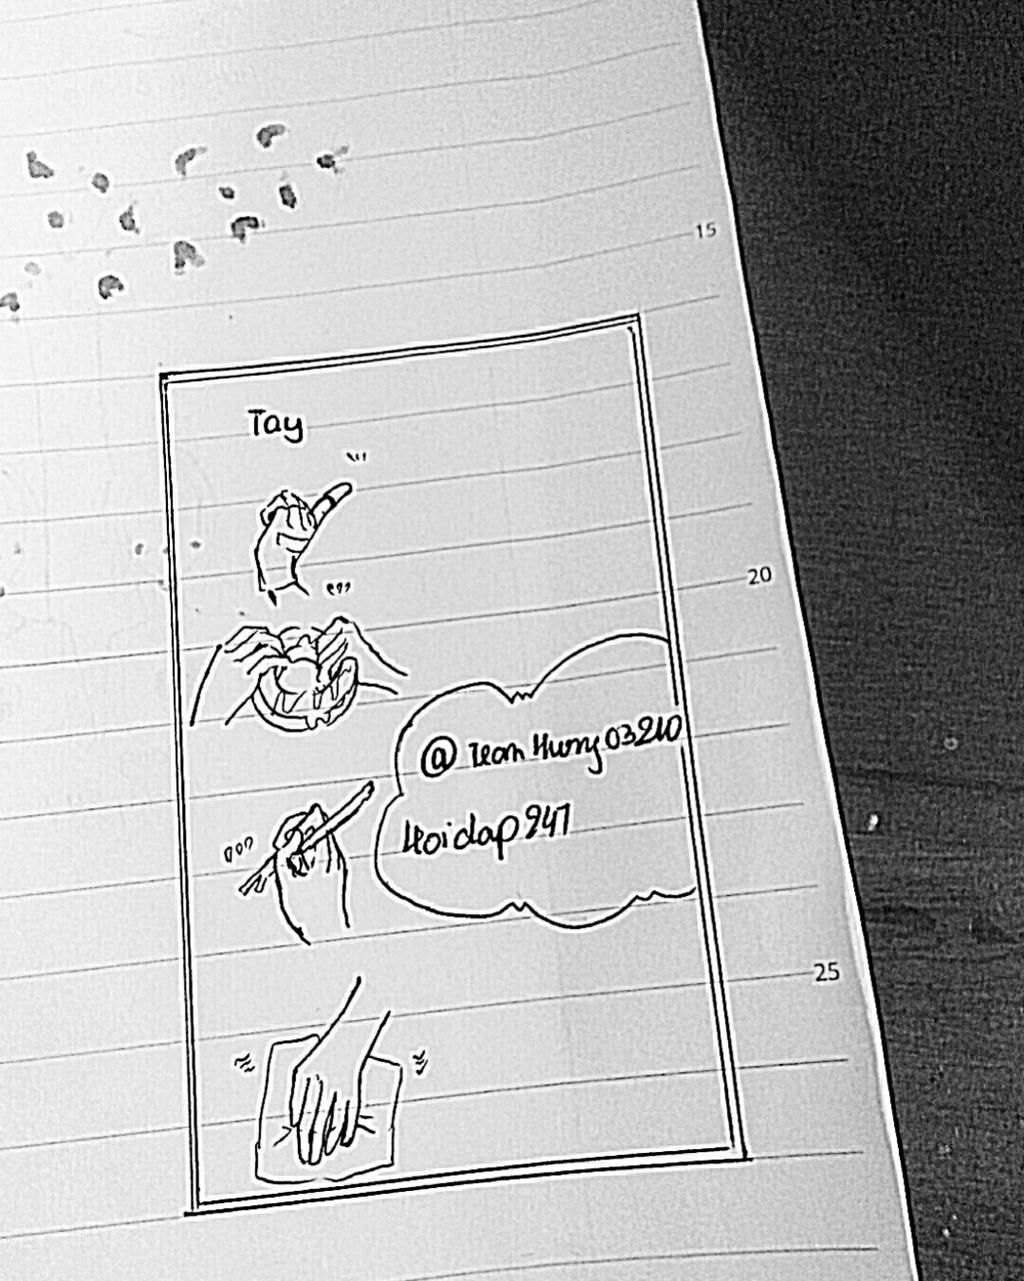 15
Tay
20
@ Team Hurry 03210
Hoidap 247
25